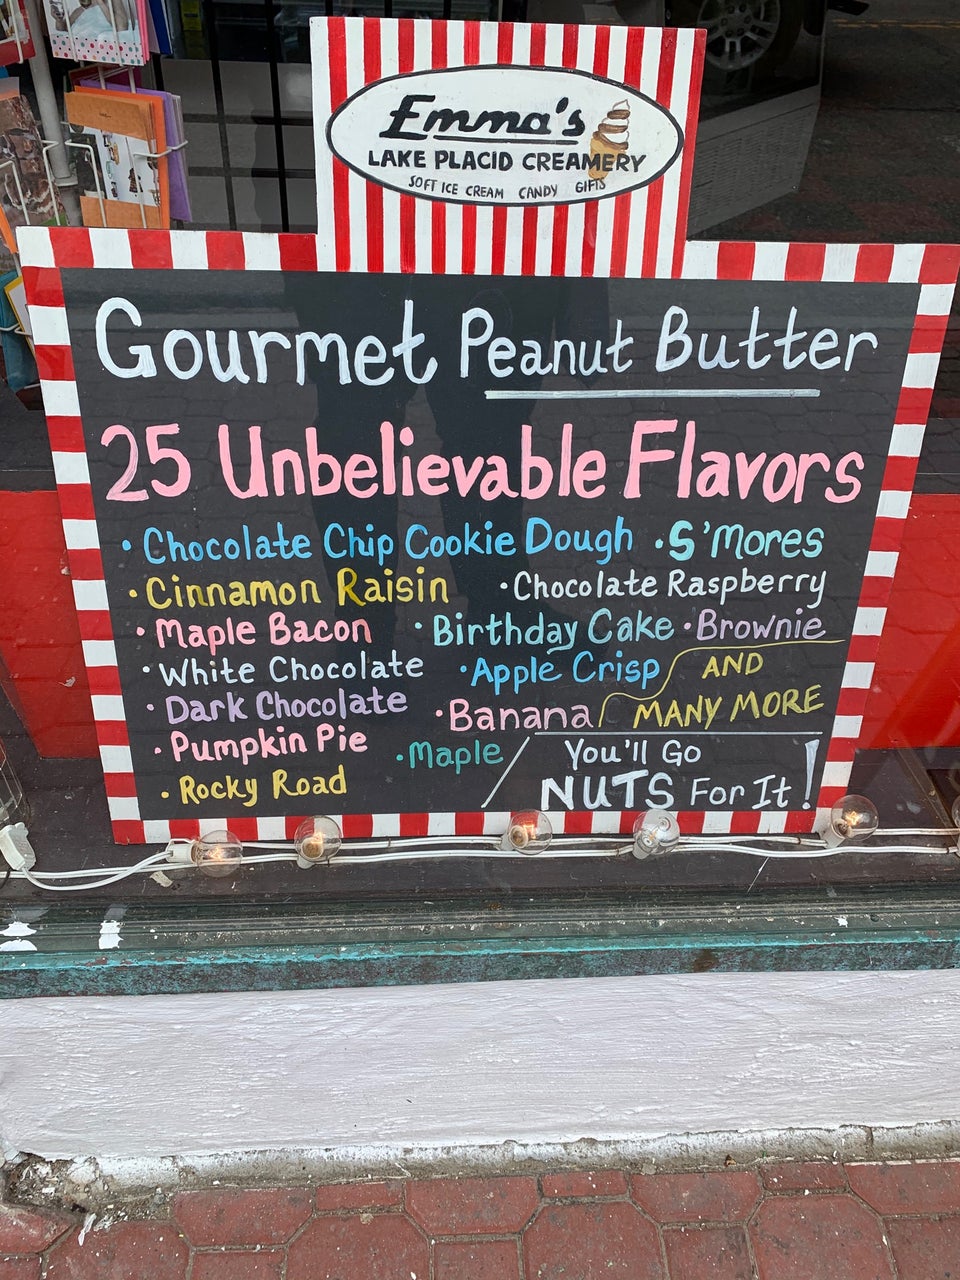 Emma's
LAKE PLACID CREAMERY
SOFT ICE CREAM CANDY GIFTS
Gourmet Peanut Butter
25 Unbelievable Flavors
• Chocolate Chip Cookie Dough • S'mores
• Cinnamon Raisin • Chocolate Raspberry
• Maple Bacon • Birthday Cake • Brownie
• White Chocolate • Apple Crisp AND
• Dark Chocolate • Banana MANY MORE
• Pumpkin Pie • Maple You'll Go
• Rocky Road NUTS For It!